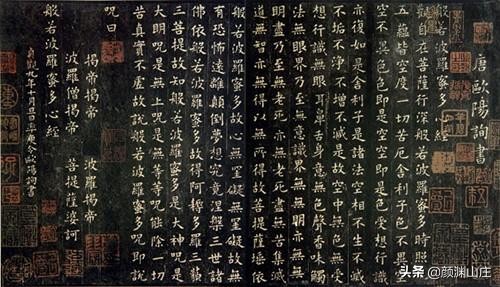 唐歐陽詢書
般若波羅蜜多心經
觀自在菩薩行深般若波羅蜜多時照見
五蘊皆空度一切苦厄舍利子色不異空
空不異色色即是空空即是色受想行識
亦復如是舍利子是諸法空相不生不滅
不垢不淨不增不減是故空中無色無受
想行識無眼耳鼻舌身意無色聲香味觸
法無眼界乃至無意識界無無明亦無無
明盡乃至無老死亦無老死盡無苦集滅
道無智亦無得以無所得故菩提薩埵依
般若波羅蜜多故心無罣礙無罣礙故無
有恐怖遠離顛倒夢想究竟涅槃三世諸
佛依般若波羅蜜多故得阿耨多羅三藐
三菩提故知般若波羅蜜多是大神呪是
大明呪是無上呪是無等等呪能除一切
苦真實不虛故說般若波羅蜜多呪即說
呪曰
揭帝揭帝 波羅揭帝
波羅僧揭帝 菩提薩婆訶
般若波羅蜜多心經
貞觀九年十月旦日率更令歐陽詢書
头条 @颜渊山庄